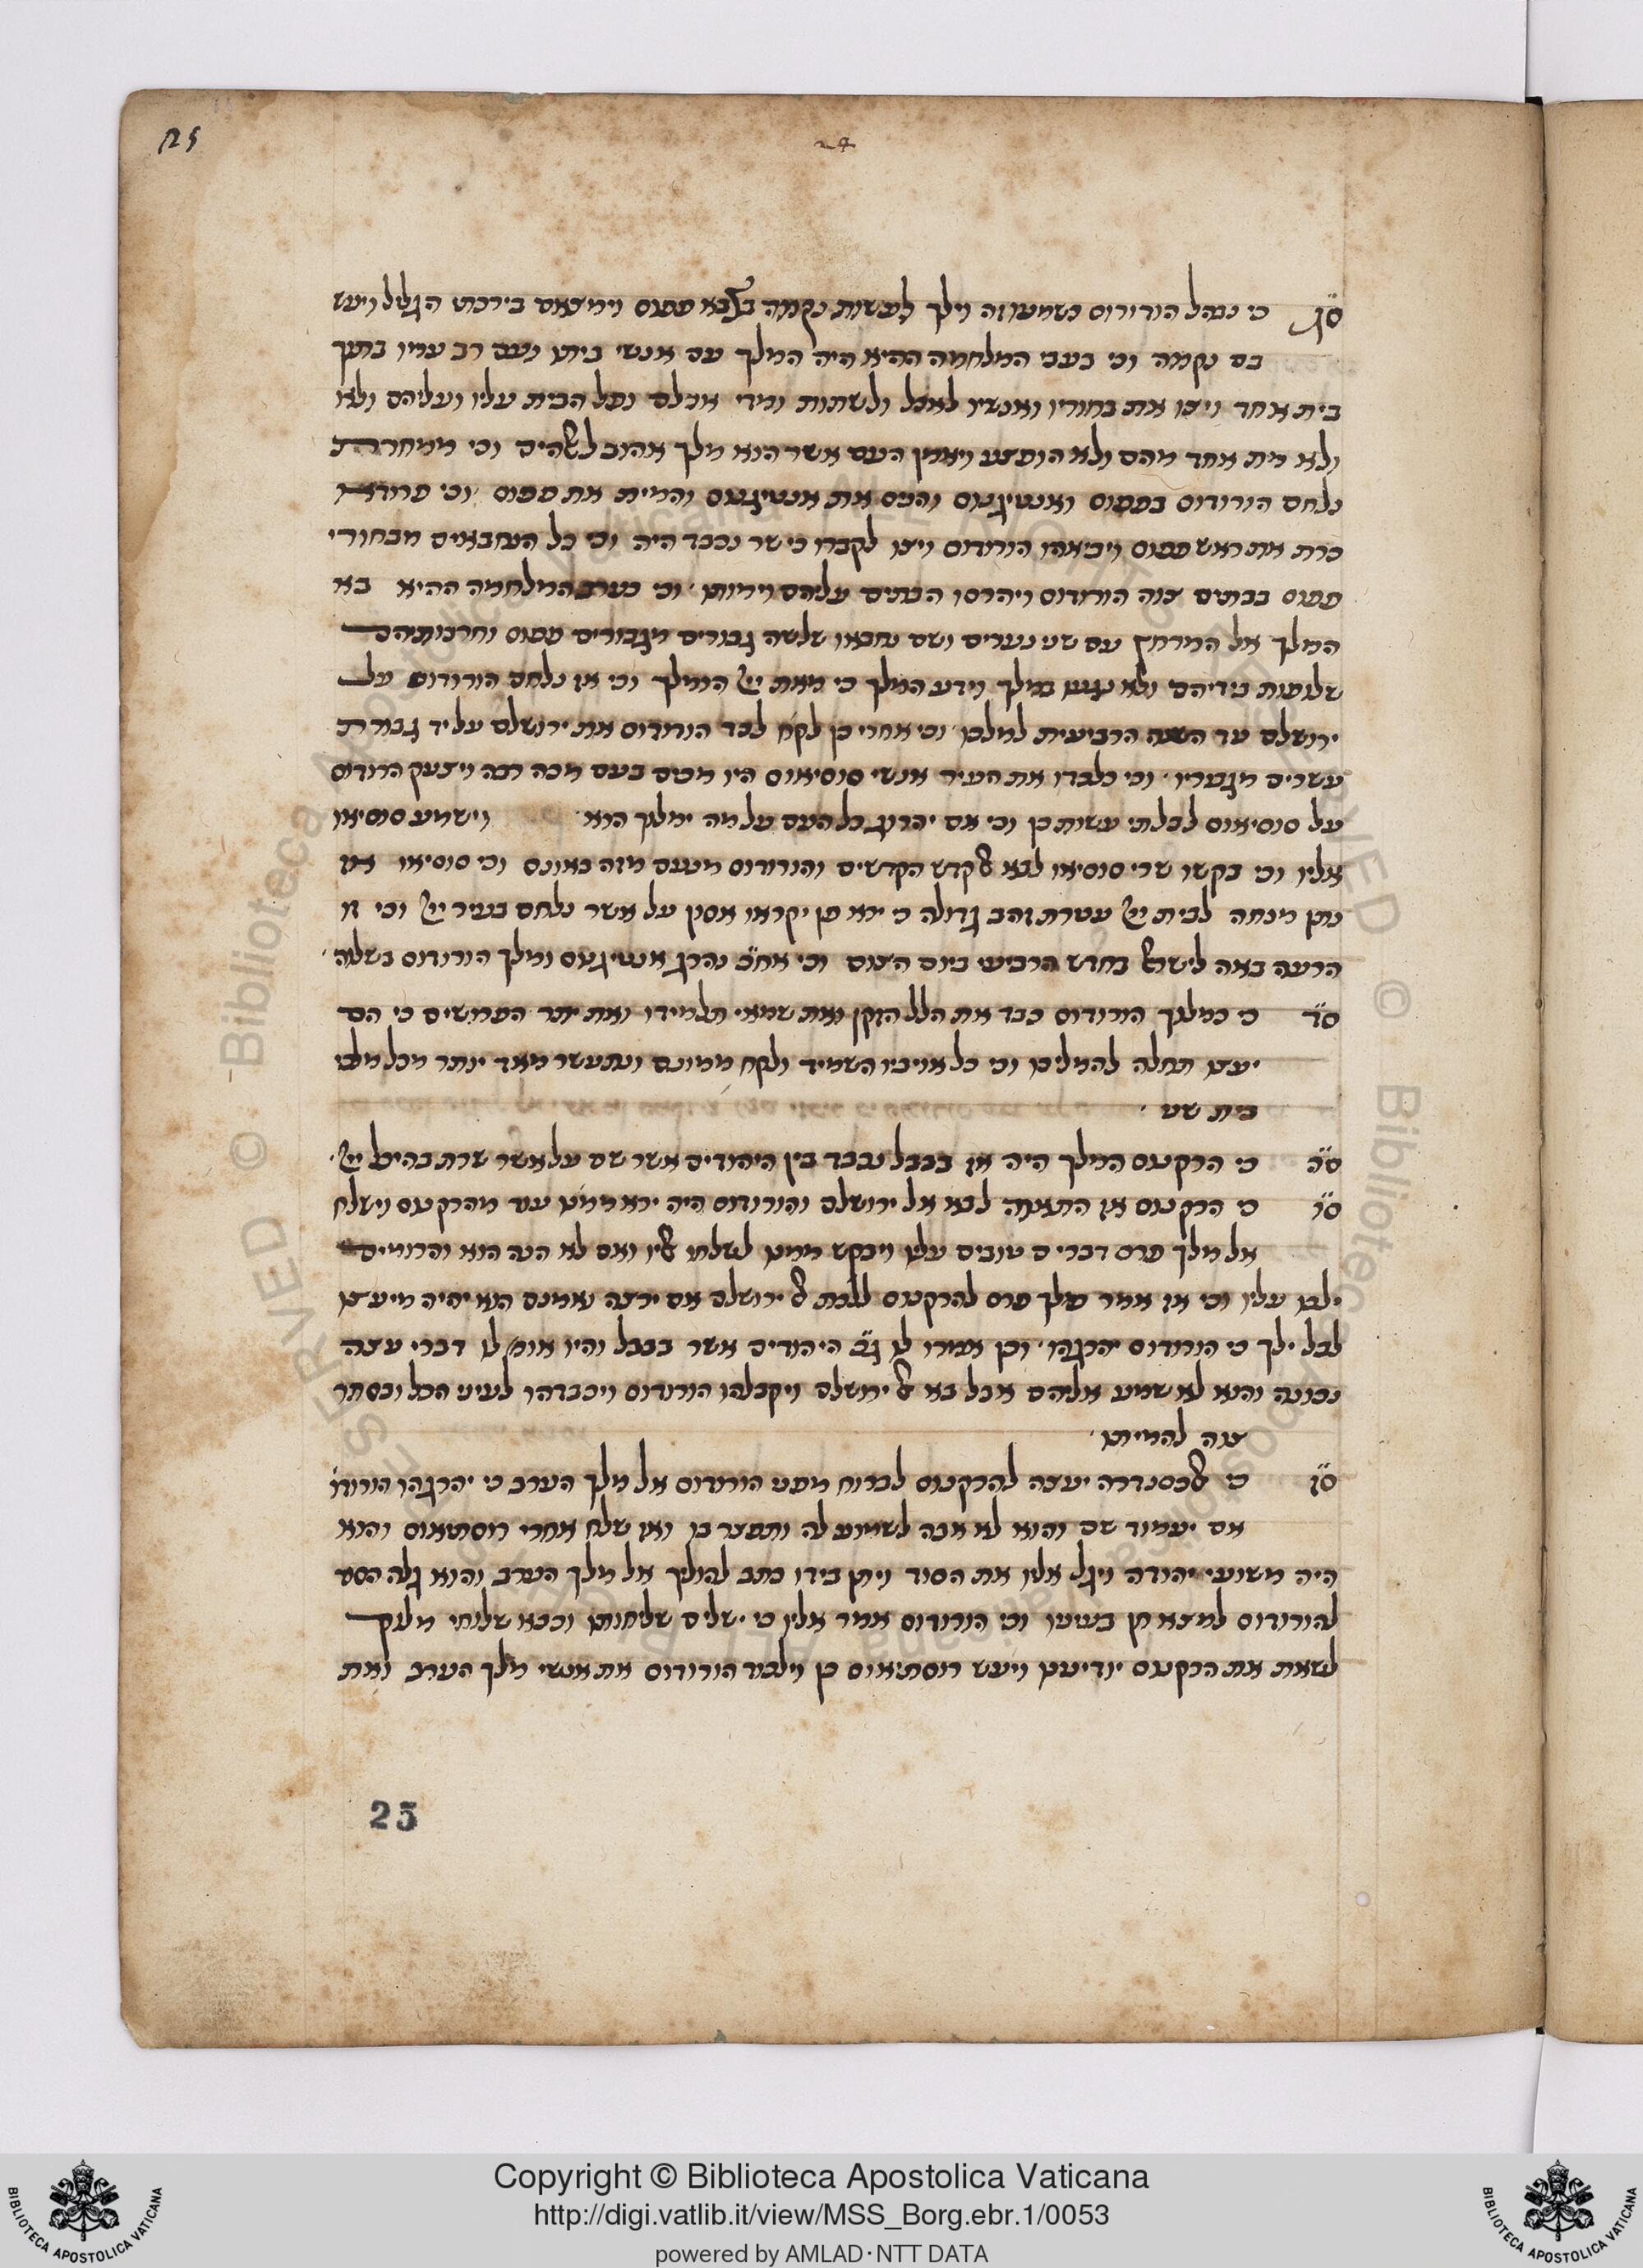 125
סג כי נבהל הורודוס כשמעו זה וילך לעשות נקמה בצבא פפוס וימצאם בירכתי הגליל ויעש
בם נקמה וכי בעב המלחמה ההיא היה המלך עם אנשי ביתו ועם רב עמיו בתוך
בית אחד ויצו את בחוריו ואנשיו לאכל ולשתות ומדי אכלם נפל הבית עליו ועליהם ולא
ולא מת אחד מהם ולא הופצע ויאמן העם אשר הוא מלך אהוב לאלהים וכי ממחרת
נלחם הורודוס בפפוס ואנטיגנוס והניס את אנטיגנוס והמית את פפוס וכי פרודא
כרת את ראש פפוס ויביאהו הורודוס ויצו לקברו כי שר נכבד היה וכי כל הנחבאים מבחורי
פפוס בבתים צוה הורודוס ויהרסו הבתים עליהם וימותו וכי כערב המלחמה ההיא בא
המלך אל המרחץ עם שני נערים ושם נחבאו שלשה גבורים מגבורים פפוס וחרבותיהם
שלופות בידיהם ולא נגעו במלך וידע המלך כי מאת ייי הומלך וכי אז נלחם הורודוס על
ירושלם עד השנה הרביעית למלכו וכי אחרי כן לקח לכד הורודוס את ירושלם על יד גבורת
עשרים מגבוריו וכי כלכדו את העיר אנשי סוסיאוס היו מכים בעם מכה רבה ויצעק הרודוס
על סוסיאוס לבלתי עשות כן וכי אם יהרוג כל העם על מה ימלוך הוא וישמע סוסיאו
אליו וכי בקשו שרי סוסיאו לבא אל קדש הקדשים והורודוס מנעם מזה באונס וכי סוסיאו אז
נתן מנחה לבית ייי עטרת זהב גדולה כי ירא פן יקראו אסון על אשר נלחם בעיר ייי וכי זו
הרעה באה לישראל בחדש הרביעי ביום הצום וכי אח״כ נהרג אנטיגנוס ומלך הורודוס בשלוה
סד כי כמלוך הורודוס כבד את הלל הזקן ואת שמאי תלמידו ואת יתר הפרושים כי הם
יעצו תחלה להמליכו וכי כל אויביו השמיד ולקח ממונם ונתעשר מאד יותר מכל מלכי
בית שני
סה כי הרקנוס המלך היה אז בבבל נכבד בין היהודים אשר שם על אשר שרת בהיכל ייי
סו כי הרקנוס אז התאוה לבא אל ירושלם והורודוס היה ירא ממנו עוד מהרקנוס וישלח
אל מלך פרס דברים טובים עליו ויבקש ממנו לשלחו אליו ואם לא הנה הוא והרומיים
ילכו עליו וכי אז אמר מלך פרס להרקנוס ללכת אל ירושלם אם ירצה ואמנם הוא יהיה מיעצו
לבל ילך כי הורודוס יהרגהו וכן אמרו לו ג״כ היהודים אשר בבבל והיו אומ׳ לו דברי עצה
נכונה והוא לא שמע אליהם אבל בא אל ירושלם ויקבלהו הורודוס ויכבדהו לעיני הכל ובסתר
צוה להמיתו
סז כי אלכסנדרה יעצה להרקנוס לברוח מפני הורודוס אל מלך הערב כי יהרגהו הורודו
אם יעמוד שם והוא לא אבה לשמוע לה ותפצר בו ואז שלח אחרי דוסתאוס והוא
היה משועי יהודה ויגל אליו את הסוד ויתן בידו כתב להוליך אל מלך הערב והוא גלה הסוד
להורודוס למצא חן בעיניו וכי הורודוס אמר אליו כי ישלים שליחותו וכבא שלוחי מלך
לשאת את הרקנוס יודיענו ויעש דוסתאוס כן וילכוד הורודוס את אנשי מלך הערב ואת
25
BIBLIOTECA APOSTOLICA VATICANA
Copyright © Biblioteca Apostolica Vaticana
http://digi.vatlib.it/view/MSS_Borg.ebr.1/0053
powered by AMLAD·NTT DATA
BIBLIOTECA APOSTOLICA VATICANA